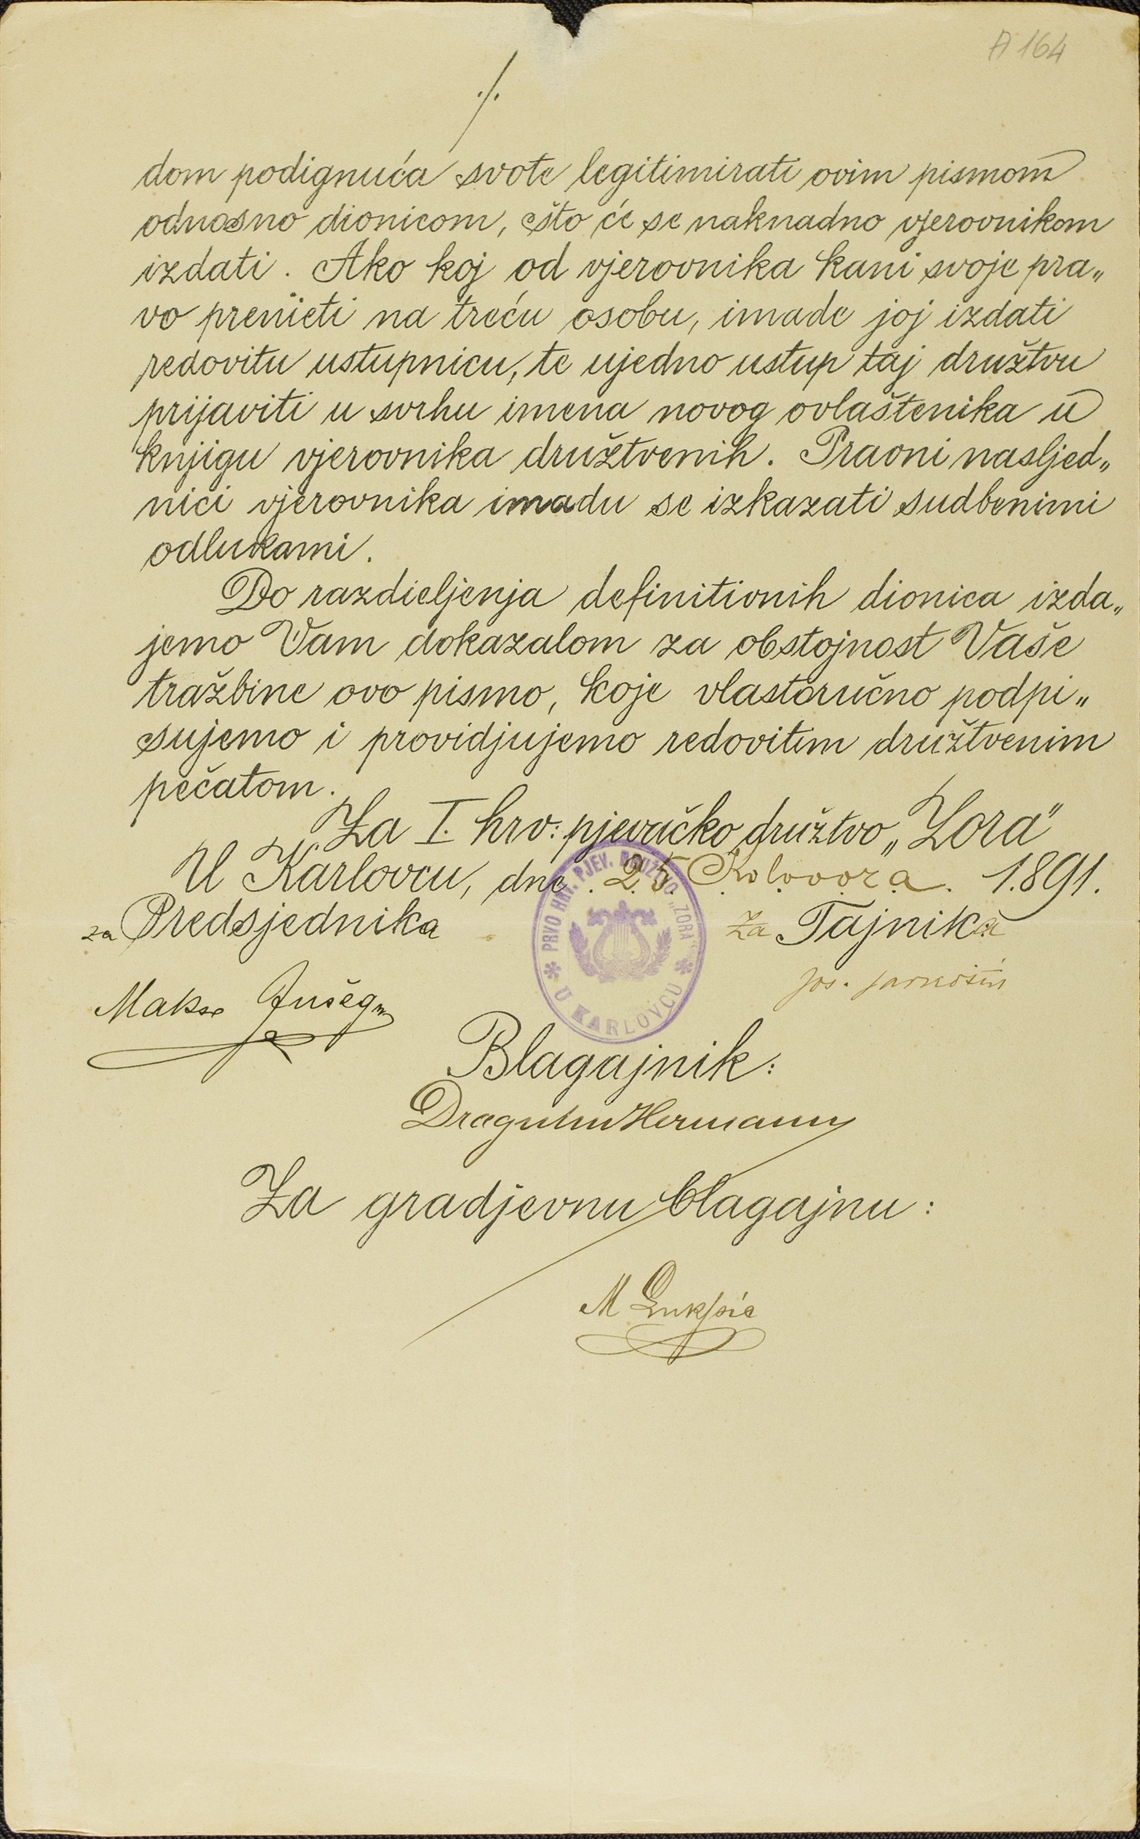 A 164
./.
dom podignuća svote legitimirati ovim pismom
odnosno dionicom, što će se naknadno vjerovnikom
izdati. Ako koj od vjerovnika kani svoje pra„
vo prenieti na treću osobu, imade joj izdati
redovitu ustupnicu, te ujedno ustup taj družtvu
prijaviti u svrhu imena novog ovlaštenika u
knjigu vjerovnika družtvenih. Pravni nasljed„
nici vjerovnika imadu se izkazati sudbenimi
odlukami.
Do razdieljenja definitivnih dionica izda„
jemo Vam dokazalom za obstojnost Vaše
tražbine ovo pismo, koje vlastoručno podpi„
sujemo i providjujemo redovitim družtvenim
pečatom.
Za I. hrv: pjevačko družtvo „Zora"
U Karlovcu, dne 25 Kolovoza 1891.
za Predsjednika
za Tajnika
PRVO HRV. PJEV. DRUŽTVO „ZORA"
U KARLOVCU
Makso
Blagajnik:
Dragutin Hermann
Za gradjevnu blagajnu:
M Lukšić